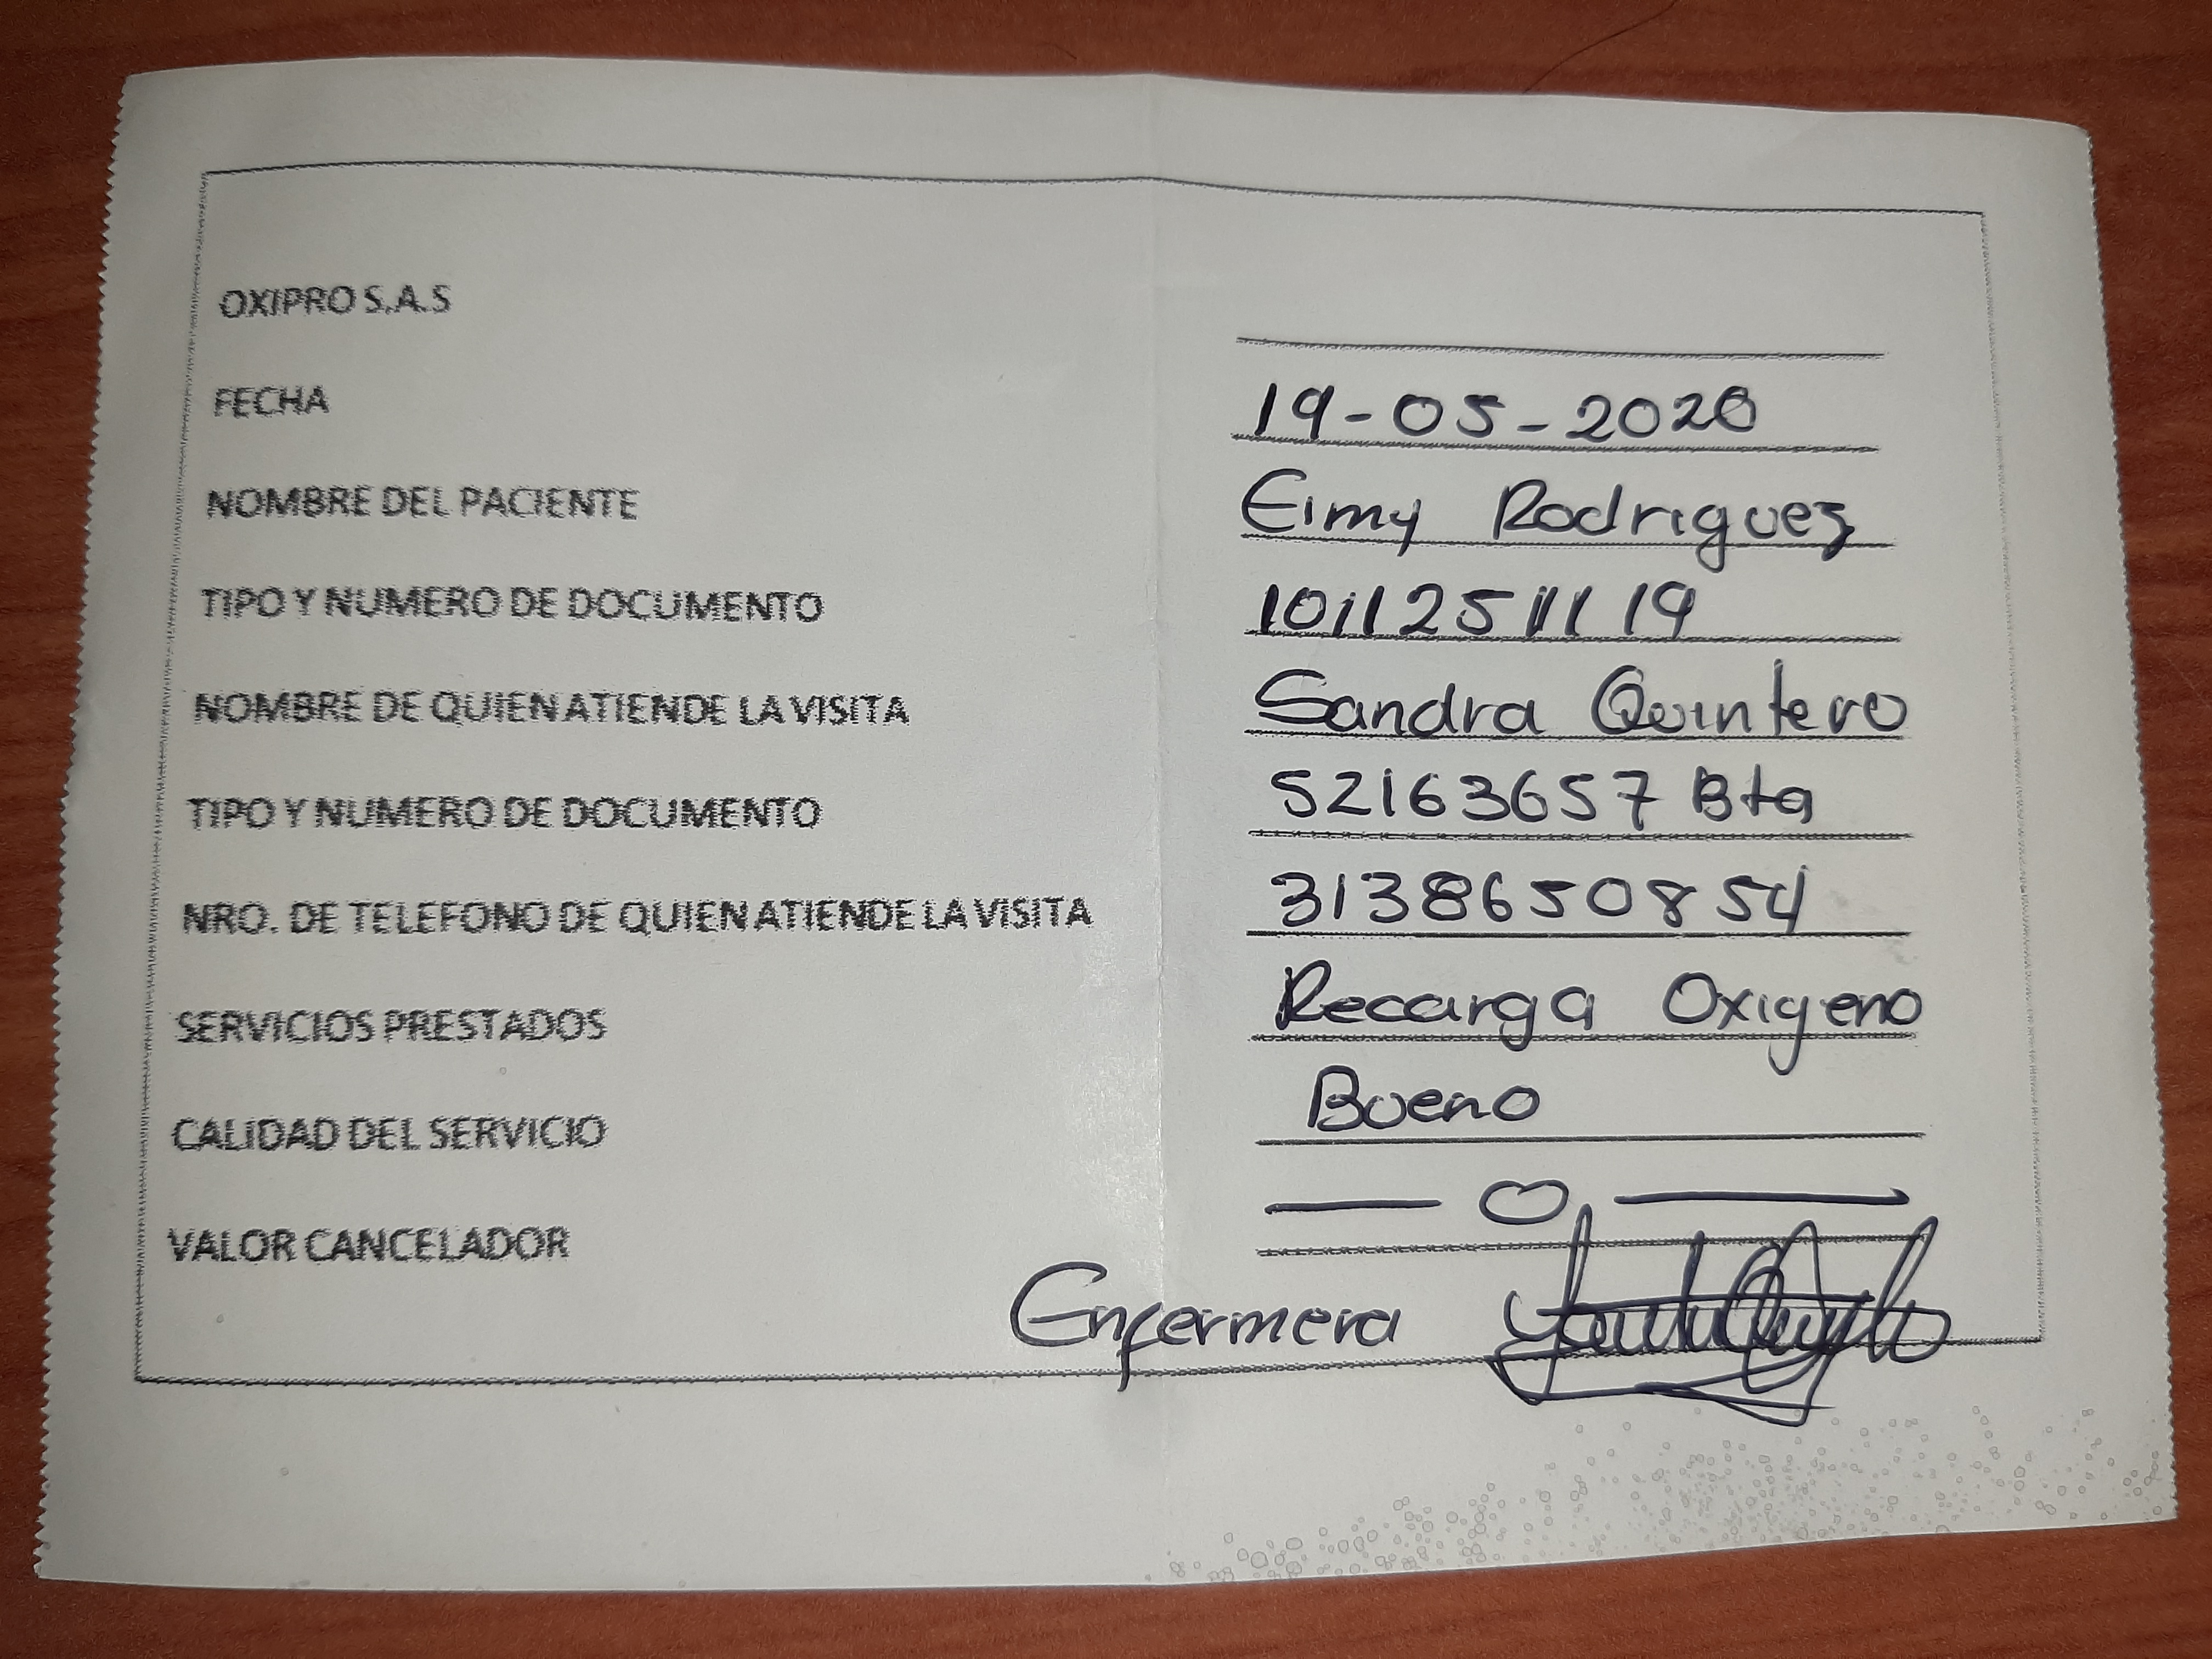 OXIPRO S.A.S
FECHA 19-05-2020
NOMBRE DEL PACIENTE Eimy Rodriguez
TIPO Y NUMERO DE DOCUMENTO
NOMBRE DE QUIEN ATIENDE LA VISITA Sandra Quintero
TIPO Y NUMERO DE DOCUMENTO 52163657 Bta
NRO. DE TELEFONO DE QUIEN ATIENDE LA VISITA 3138650854
SERVICIOS PRESTADOS Recarga Oxigeno
CALIDAD DEL SERVICIO Bueno
VALOR CANCELADOR — 0 —
Enfermera